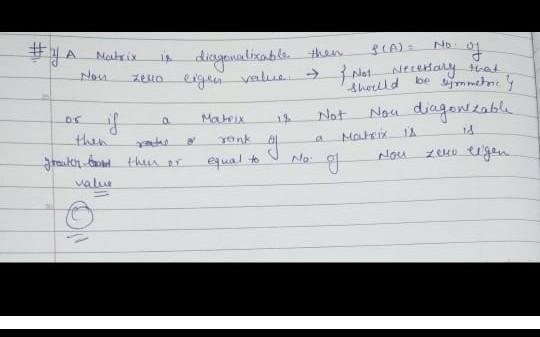 # If A Matrix is diagonalizable then ρ(A) = No. of
Non zero eigen value → {Not Necessary that should be symmetric}
or if a Matrix is Not Non diagonizable
then rank of a Matrix is is
greater then or equal to No. of Non zero eigen
value